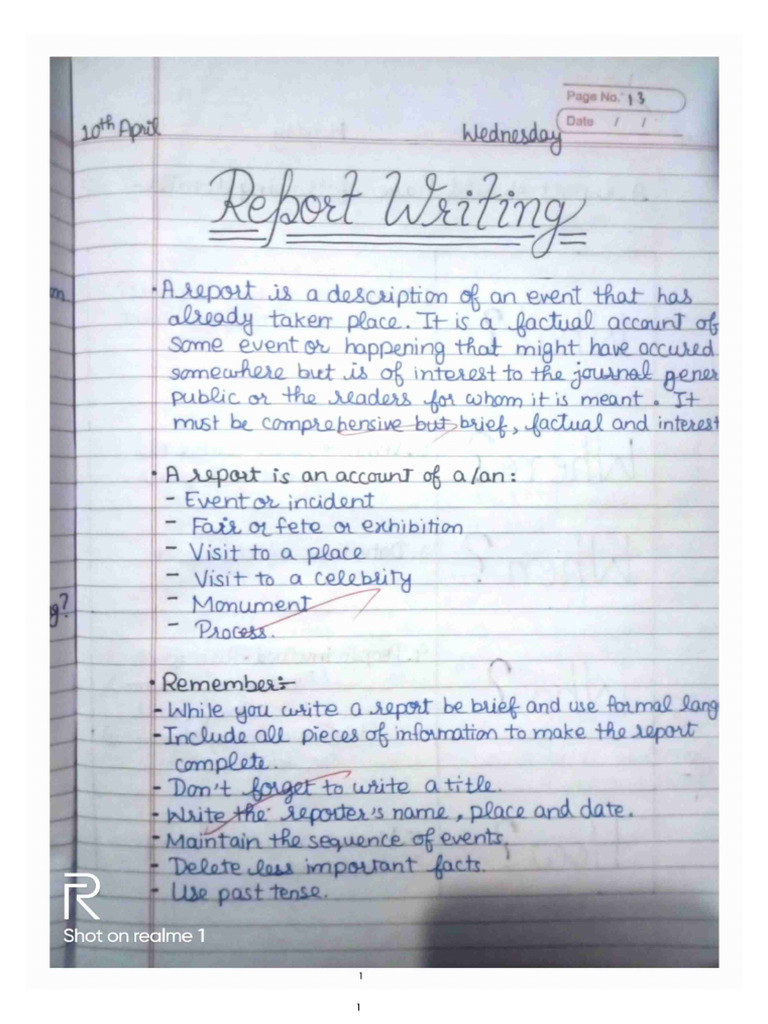 Page No. 13
Date / /
10th April Wednesday
Report Writing
m
• A report is a description of an event that has
already taken place. It is a factual account of
some event or happening that might have occured
somewhere but is of interest to the journal gener
public or the readers for whom it is meant. It
must be comprehensive but brief, factual and interest
• A report is an account of a/an:
- Event or incident
- Fair or fete or exhibition
- Visit to a place
- Visit to a celebrity
- Monument
g?
- Process.
• Remember:-
- While you write a report be brief and use formal lang
- Include all pieces of information to make the report
complete.
- Don't forget to write a title.
- Write the reporter's name, place and date.
- Maintain the sequence of events.
- Delete less important facts.
- Use past tense.
R
Shot on realme 1
1
1